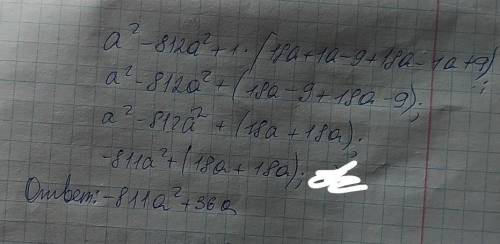 a² - 812a² + 1 · (18a + 1a - 9 + 18a - 1a + 9);
a² - 812a² + (18a - 9 + 18a - 9);
a² - 812a² + (18a + 18a);
-811a² + (18a + 18a);
Ответ: -811a² + 36a